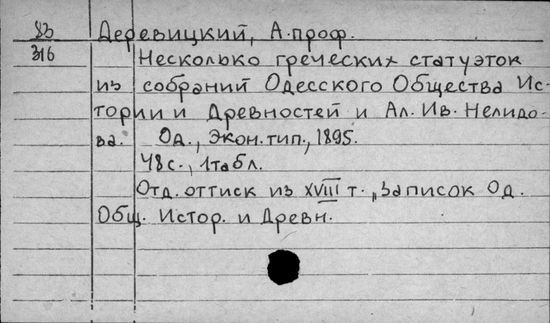 83 Деревицкий, А. проф.
316 Несколько греческих статуэток
из собраний Одесского Общества Ис-
тории и Древностей и Ал. Ив. Нелидо-
ва. Од., Экон. тип., 1895.
48 с., 1 табл.
Отд. оттиск из XVIII т. „Записок Од.
Общ. Истор. и Древн.